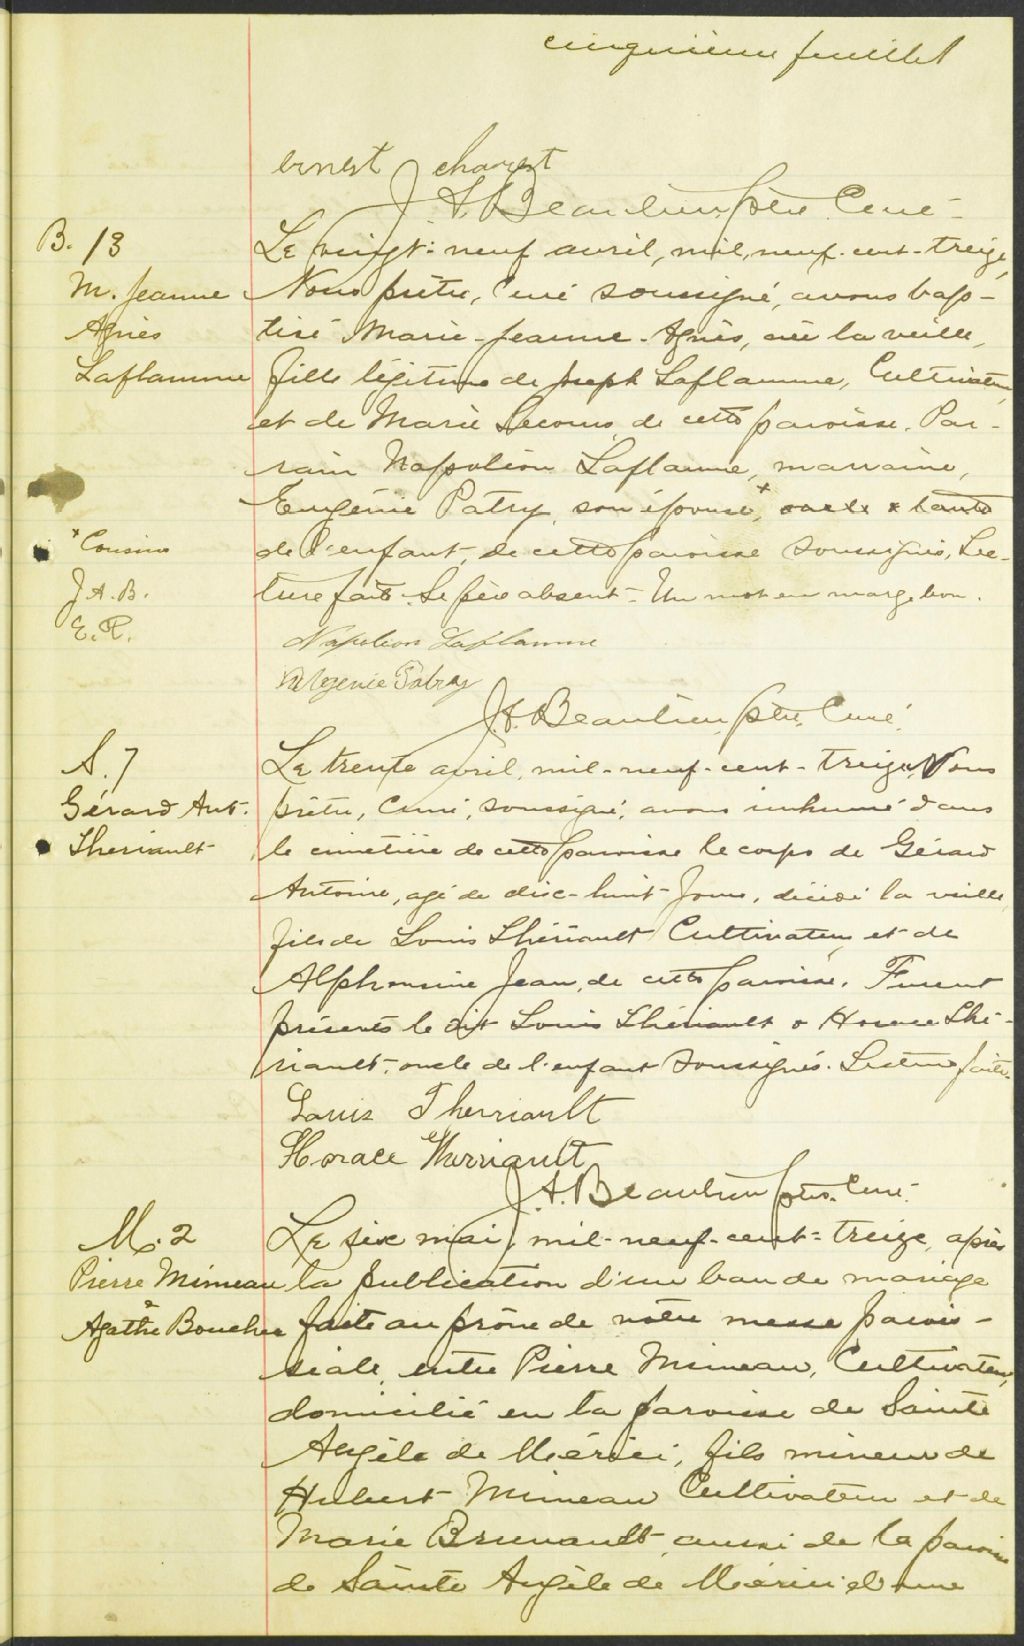 cinquième feuillet
ernest charest
J. A. Beaulieu, ptre Curé
B. 13
M. Jeanne
Agnès
Laflamme
Le vingt-neuf avril, mil-neuf-cent-treize,
Nous prêtre, Curé soussigné, avons bap-
tisé Marie-Jeanne-Agnès, née la veille,
fille légitime de Joseph Laflamme, Cultivateur,
et de Marie Lecours, de cette paroisse. Par-
rain Napoléon Laflamme, marraine,
Eugénie Patry, son épouse, x oncle & tante
de l'enfant, de cette paroisse soussignés. Lec-
ture faite. Le père absent - Un mot en marge bon.
x Cousins
J. A. B.
E. P.
Napoléon Laflamme
Patry
J. A. Beaulieu, ptre, Curé
S. 7
Gérard Ant.
Theriault
Le trente avril, mil-neuf-cent-treize, Nous
prêtre, Curé, soussigné, avons inhumé dans
le cimetière de cette paroisse le corps de Gérard
Antoine, agé de dix-huit jours, décédé la veille,
fils de Louis Thériault Cultivateur, et de
Alphonsine Jean, de cette paroisse. Furent
présents le dit Louis Thériault & Horace Thé-
riault, oncle de l'enfant soussignés. Lecture faite.
Louis Therriault
Horace Therriault
J. A. Beaulieu ptre. Curé
M. 2
Pierre Mimeau
&
Agathe Boucher
Le six mai, mil-neuf-cent-treize, après
la publication d'un ban de mariage
faite au prône de notre messe parois-
siale, entre Pierre Mimeau, Cultivateur,
domicilié en la paroisse de Sainte
Angèle de Mérici, fils mineur de
Hubert Mimeau Cultivateur et de
Marie Brunault, aussi de la paroisse
de Sainte Angèle de Mérici d'une